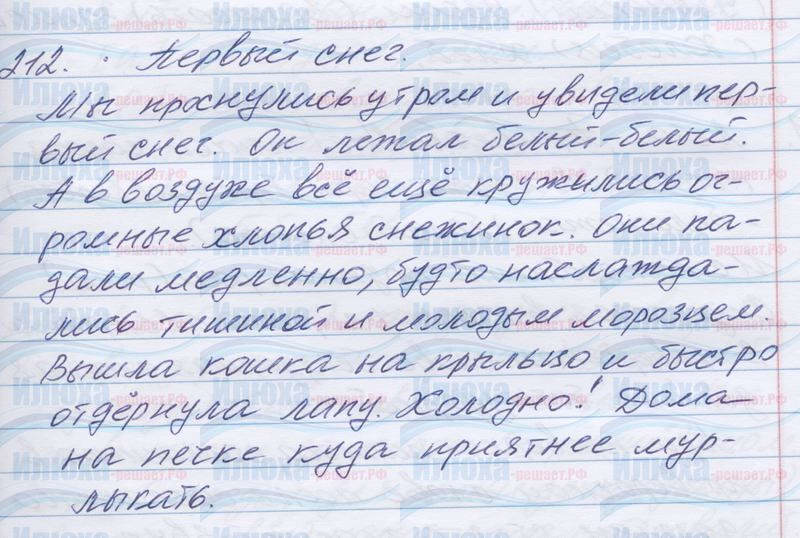 212. Первый снег.
Мы проснулись утром и увидели пер-
вый снег. Он лежал белый-белый.
А в воздухе всё ещё кружились ог-
ромные хлопья снежинок. Они па-
дали медленно, будто наслажда-
лись тишиной и молодым морозцем.
Вышла кошка на крыльцо и быстро
отдёрнула лапу. Холодно! Дома —
на печке куда приятнее мур-
лыкать.